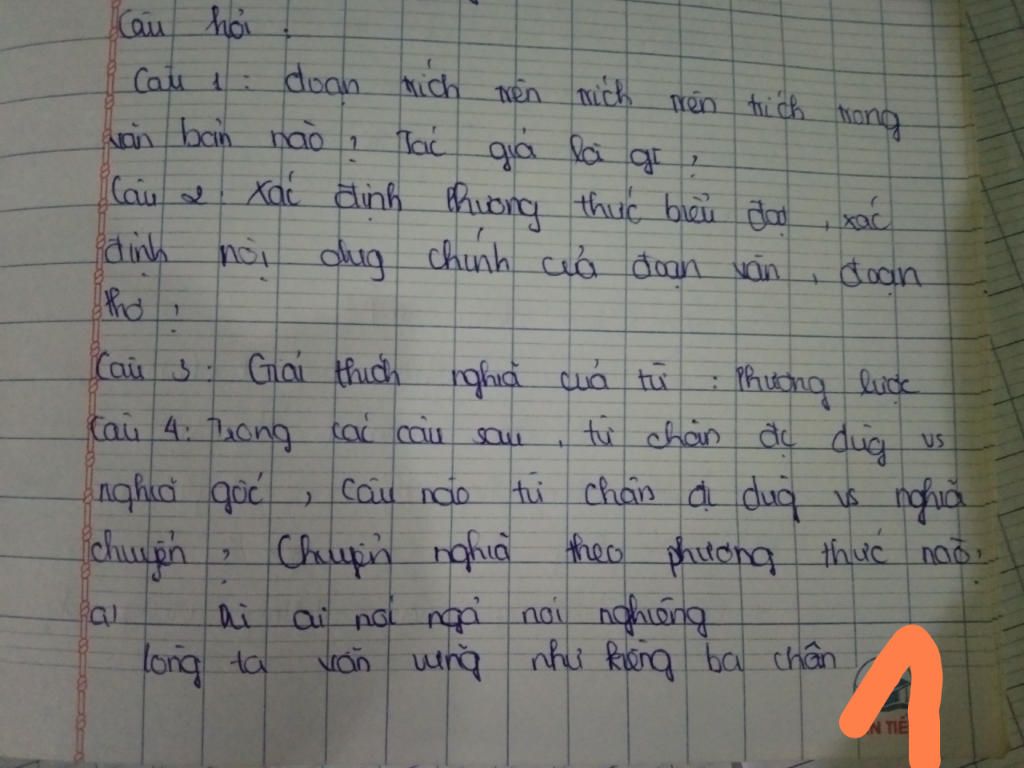 Câu hỏi .
Câu 1 : đoạn trích trên trích trên trích trong
văn bản nào ? Tác giả là gì ?
Câu 2 : Xác định Phương thức biểu đạt , xác
định nội dug chính của đoạn văn , đoạn
thơ ?
Câu 3 : Giải thích nghĩa của từ : Phương lược
Câu 4 : Trong các câu sau , từ chân đc dùg vs
nghĩa gốc , Câu nào từ chân đc dùg vs nghĩa
chuyển ? Chuyển nghĩa theo phương thức nào ?
a) Ai ai nói ngả nói nghiêng
lòng ta vẫn vững như kiềng ba chân
1